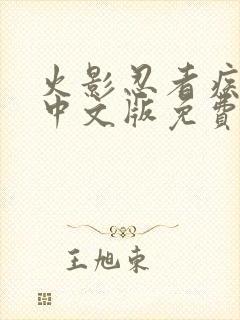 火影忍者疾
中文版免費
王旭东